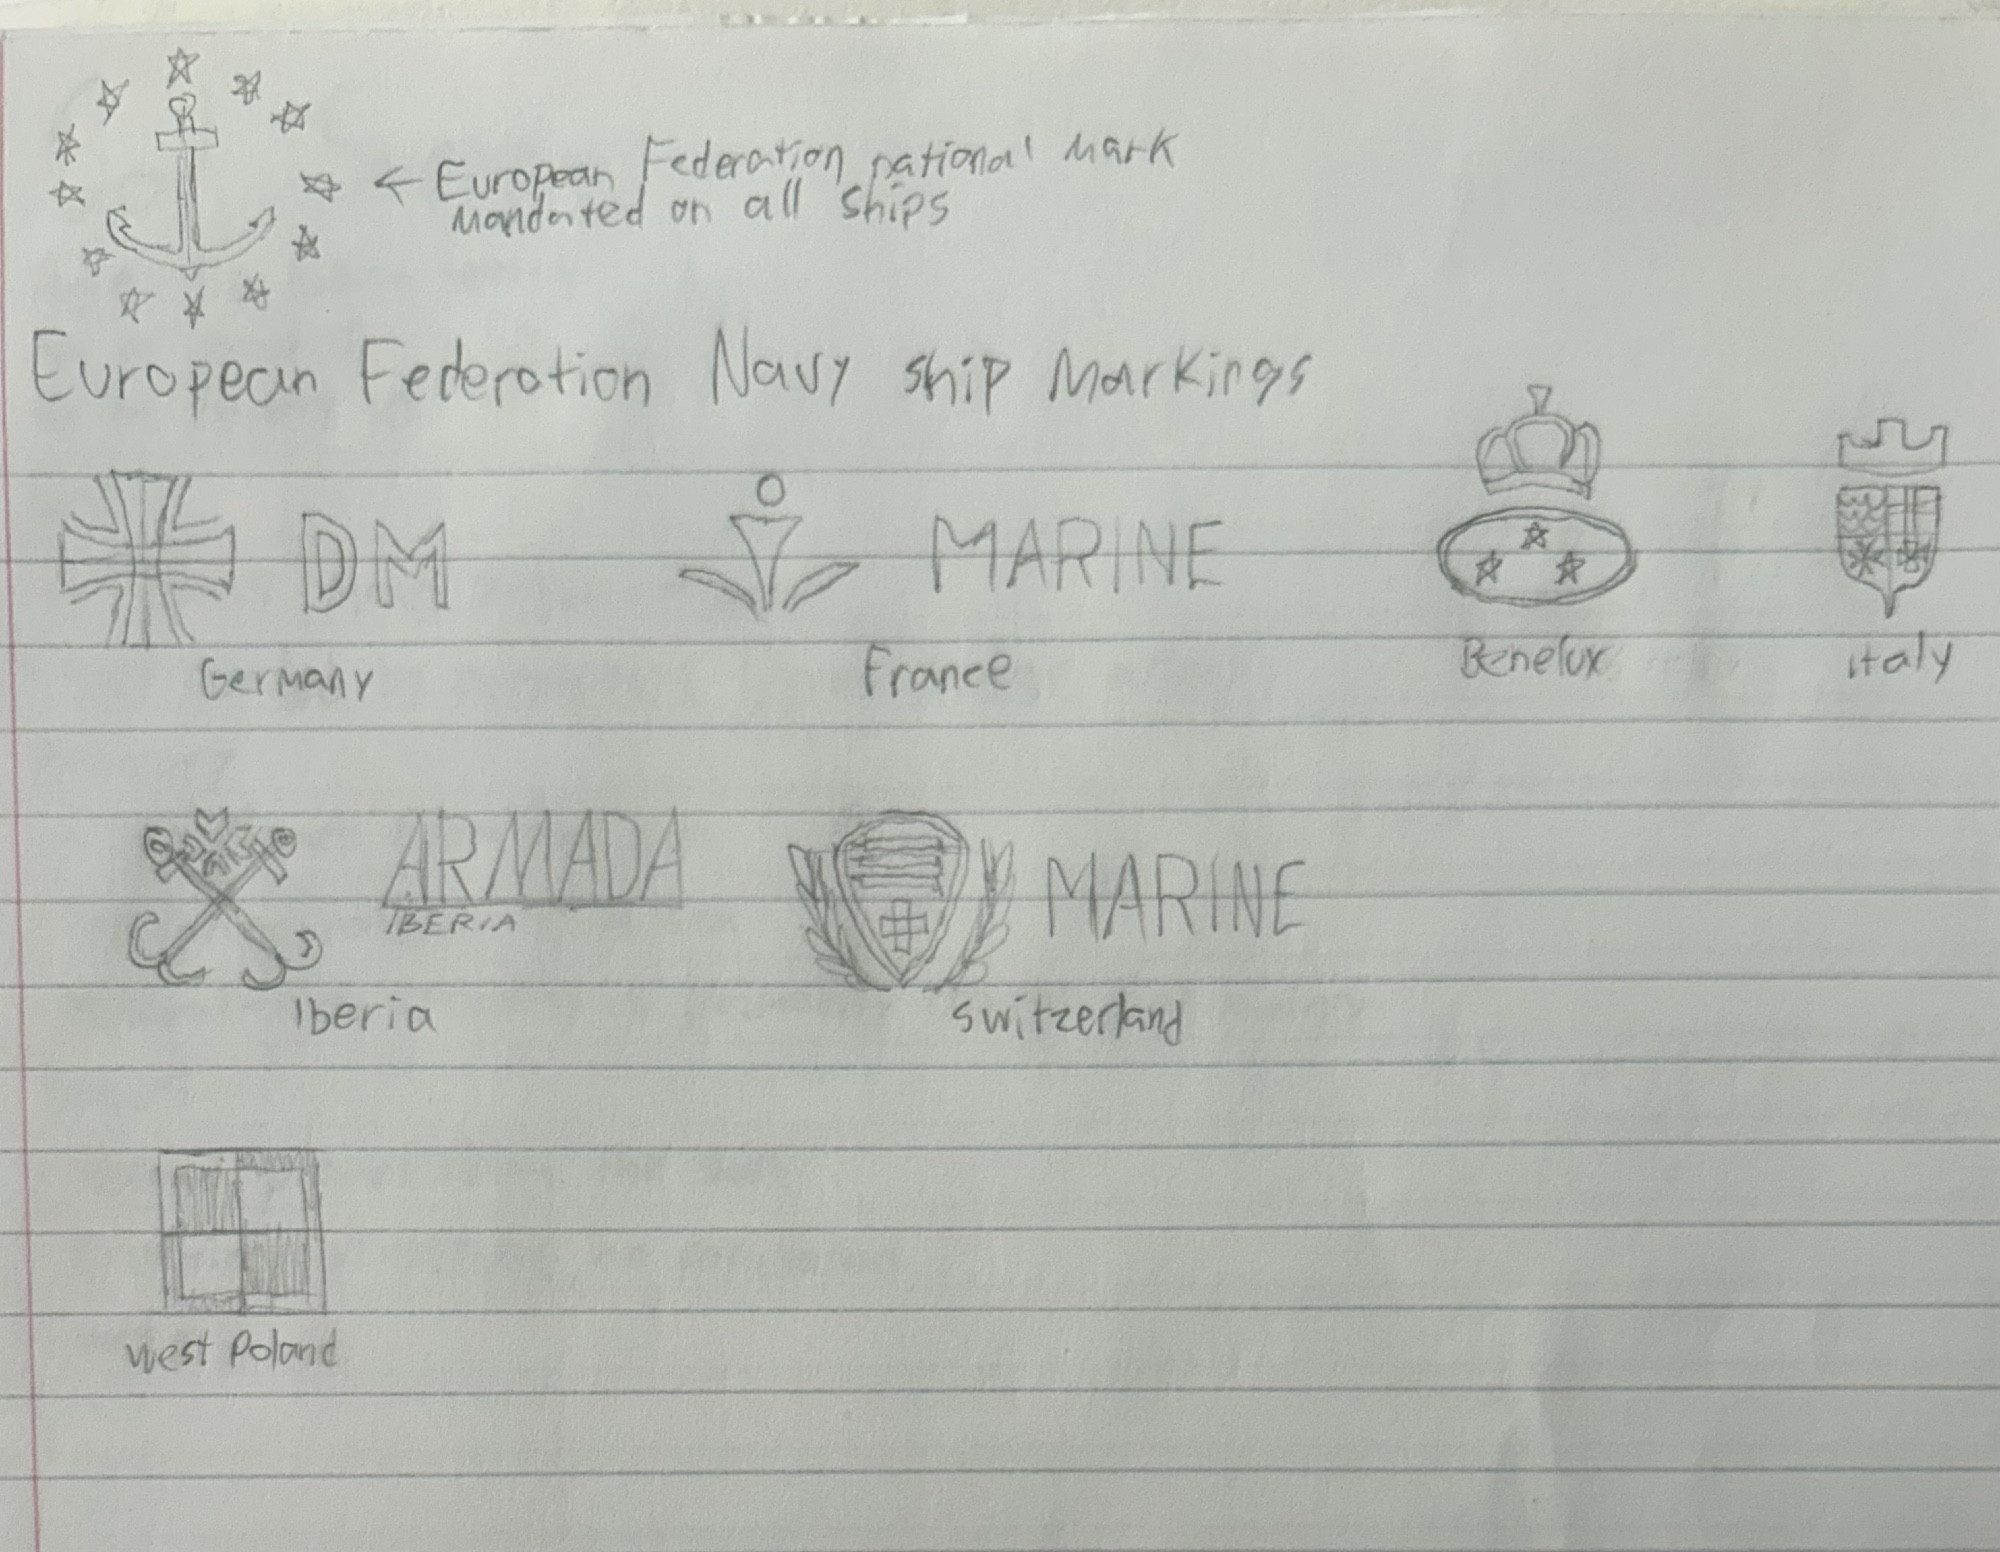 ← European Federation national Mark
Mandated on all ships
European Federation Navy ship Markings
DM
MARINE
Germany
France
Benelux
italy
ARMADA
IBERIA
MARINE
Iberia
switzerland
west Poland